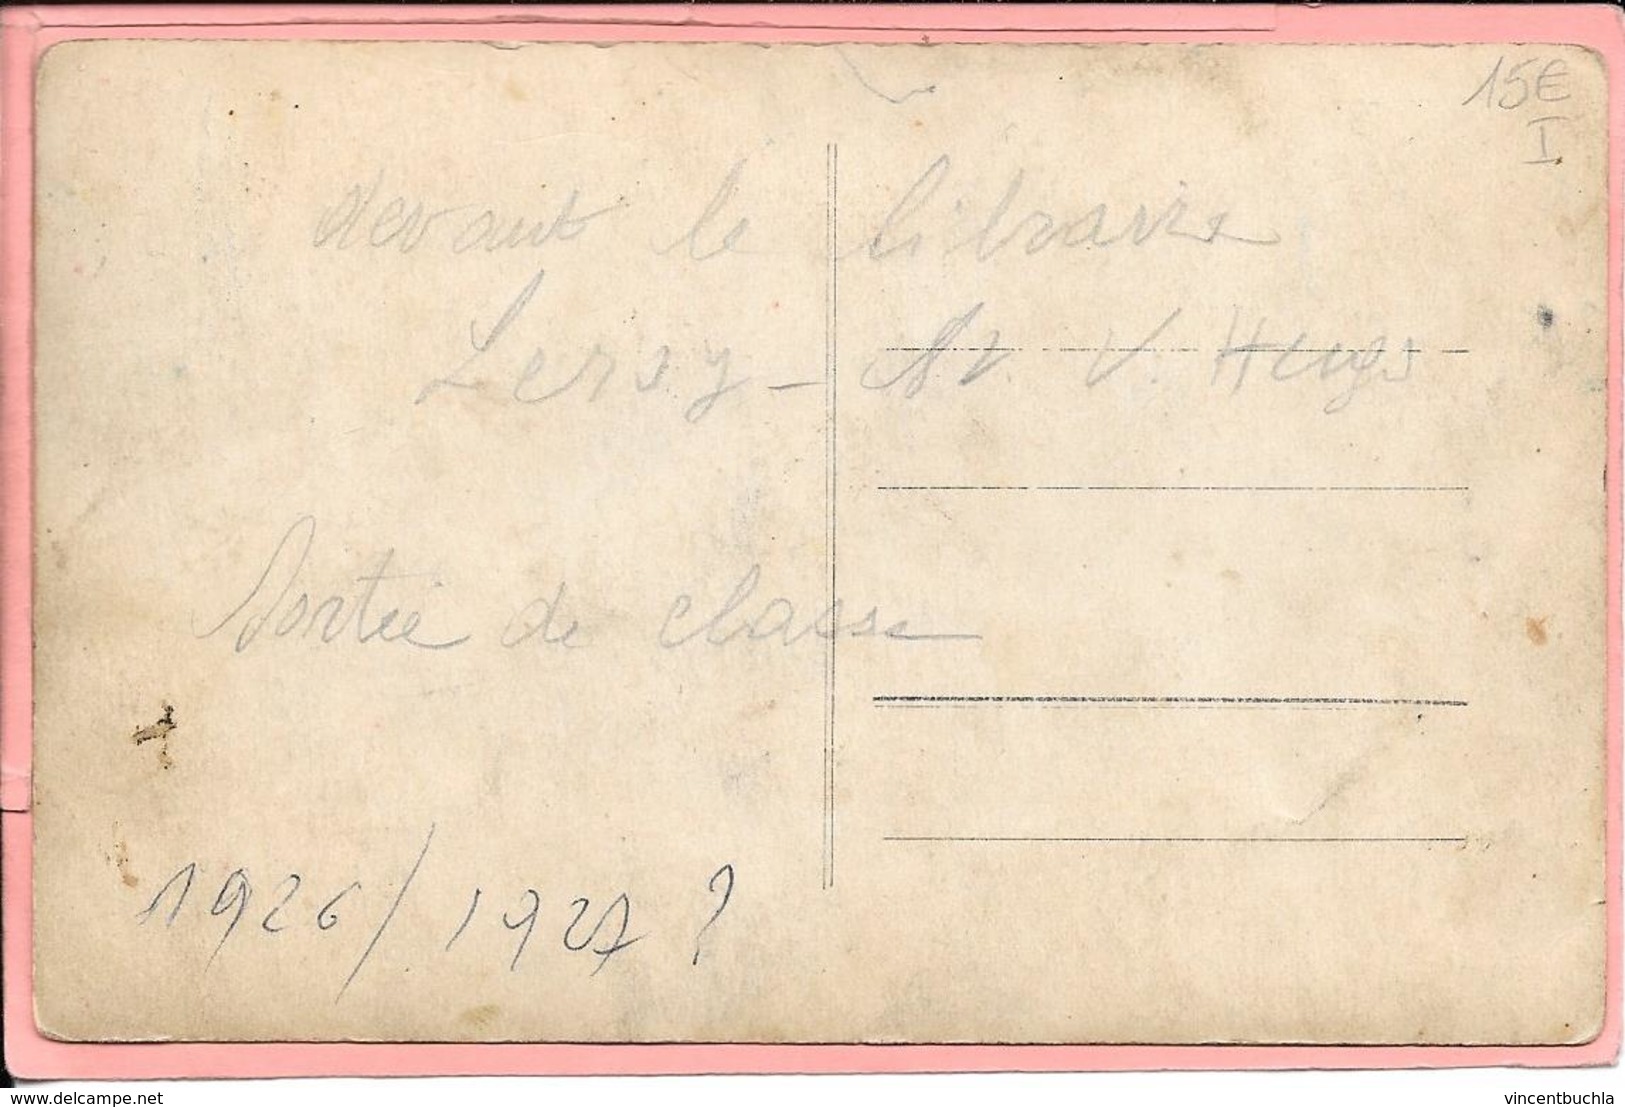 15€
I
devant le libraire
Leroy - Av. V. Hugo
Sortie de classe
1926/1927 ?
www.delcampe.net
vincentbuchla